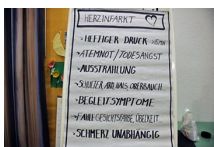 HERZINFARKT
HEFTIGER DRUCK
ATEMNOT/TODESANGST
AUSSTRAHLUNG
SCHULTER ARM HALS OBERBAUCH
BEGLEITSYMPTOME
FAHLE GESICHTSFARBE, ÜBELKEIT
SCHMERZ UNABHÄNGIG